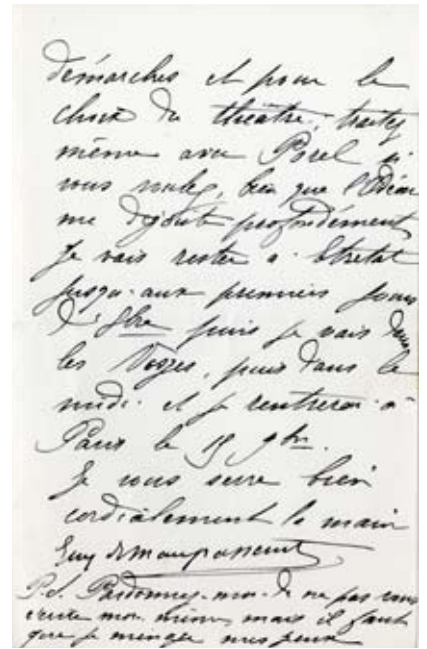 démarches et pour le
choix du théâtre, traitez
même avec Porel si
vous voulez, bien que l'Odéon
me dégoûte profondément
Je vais rester à Etretat
jusqu'aux premiers jours
d' 8bre puis je vais dans
les Vosges, puis dans le
midi et je rentrerai à
Paris le 15 9bre.
Je vous serre bien
cordialement la main
Guy de Maupassant
P.S. Pardonnez-moi de ne pas vous
écrire moi-même, mais il faut
que je ménage mes yeux